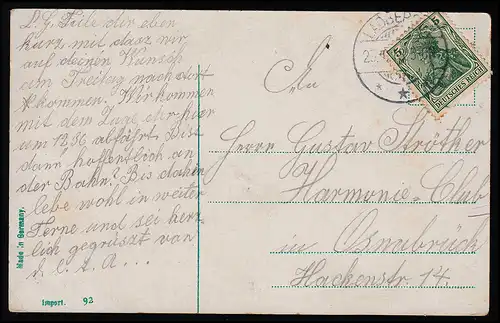 L. G. Teile dir eben
kurz mit dasz wir
auf deinen Wunsch
am Freitag nach dort
kommen. Wir kommen
mit dem Zuge der hier
um 12 56 abfährt. Bist
dann hoffentlich an
der Bahn? Bis dahin
lebe wohl in weiter
Ferne und sei herz
lich gegrüszt von
d. l. A...
An
Herrn Gustav Ströther
Harmonie-Club
in Osnabrück
Hackenstr 14.
5
DEUTSCHES REICH
Made in Germany.
Import. 92